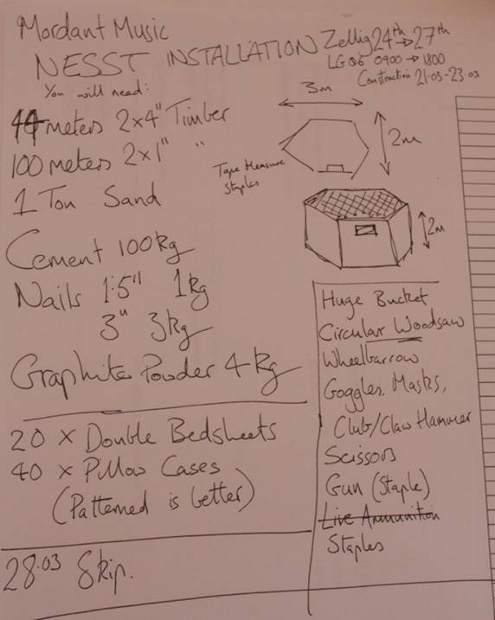 Mordant Music
NESST INSTALLATION
Zellig 24th → 27th
LG 06 0900 → 1800
Construction 21.03 - 23.03
You will need:
44 meters 2x4" Timber
100 meters 2x1" "
1 Ton Sand
Cement 100kg
Nails 1.5" 1kg
3" 3kg
Graphite Powder 4kg
20 x Double Bedsheets
40 x Pillow Cases
(Patterned is better)
28.03 Skip.
3m
2m
Tape Measure
Staples
2m
Huge Bucket
Circular Woodsaw
Wheelbarrow
Goggles, Masks,
Club/Claw Hammer
Scissors
Gun (Staple)
Live Ammunition
Staples